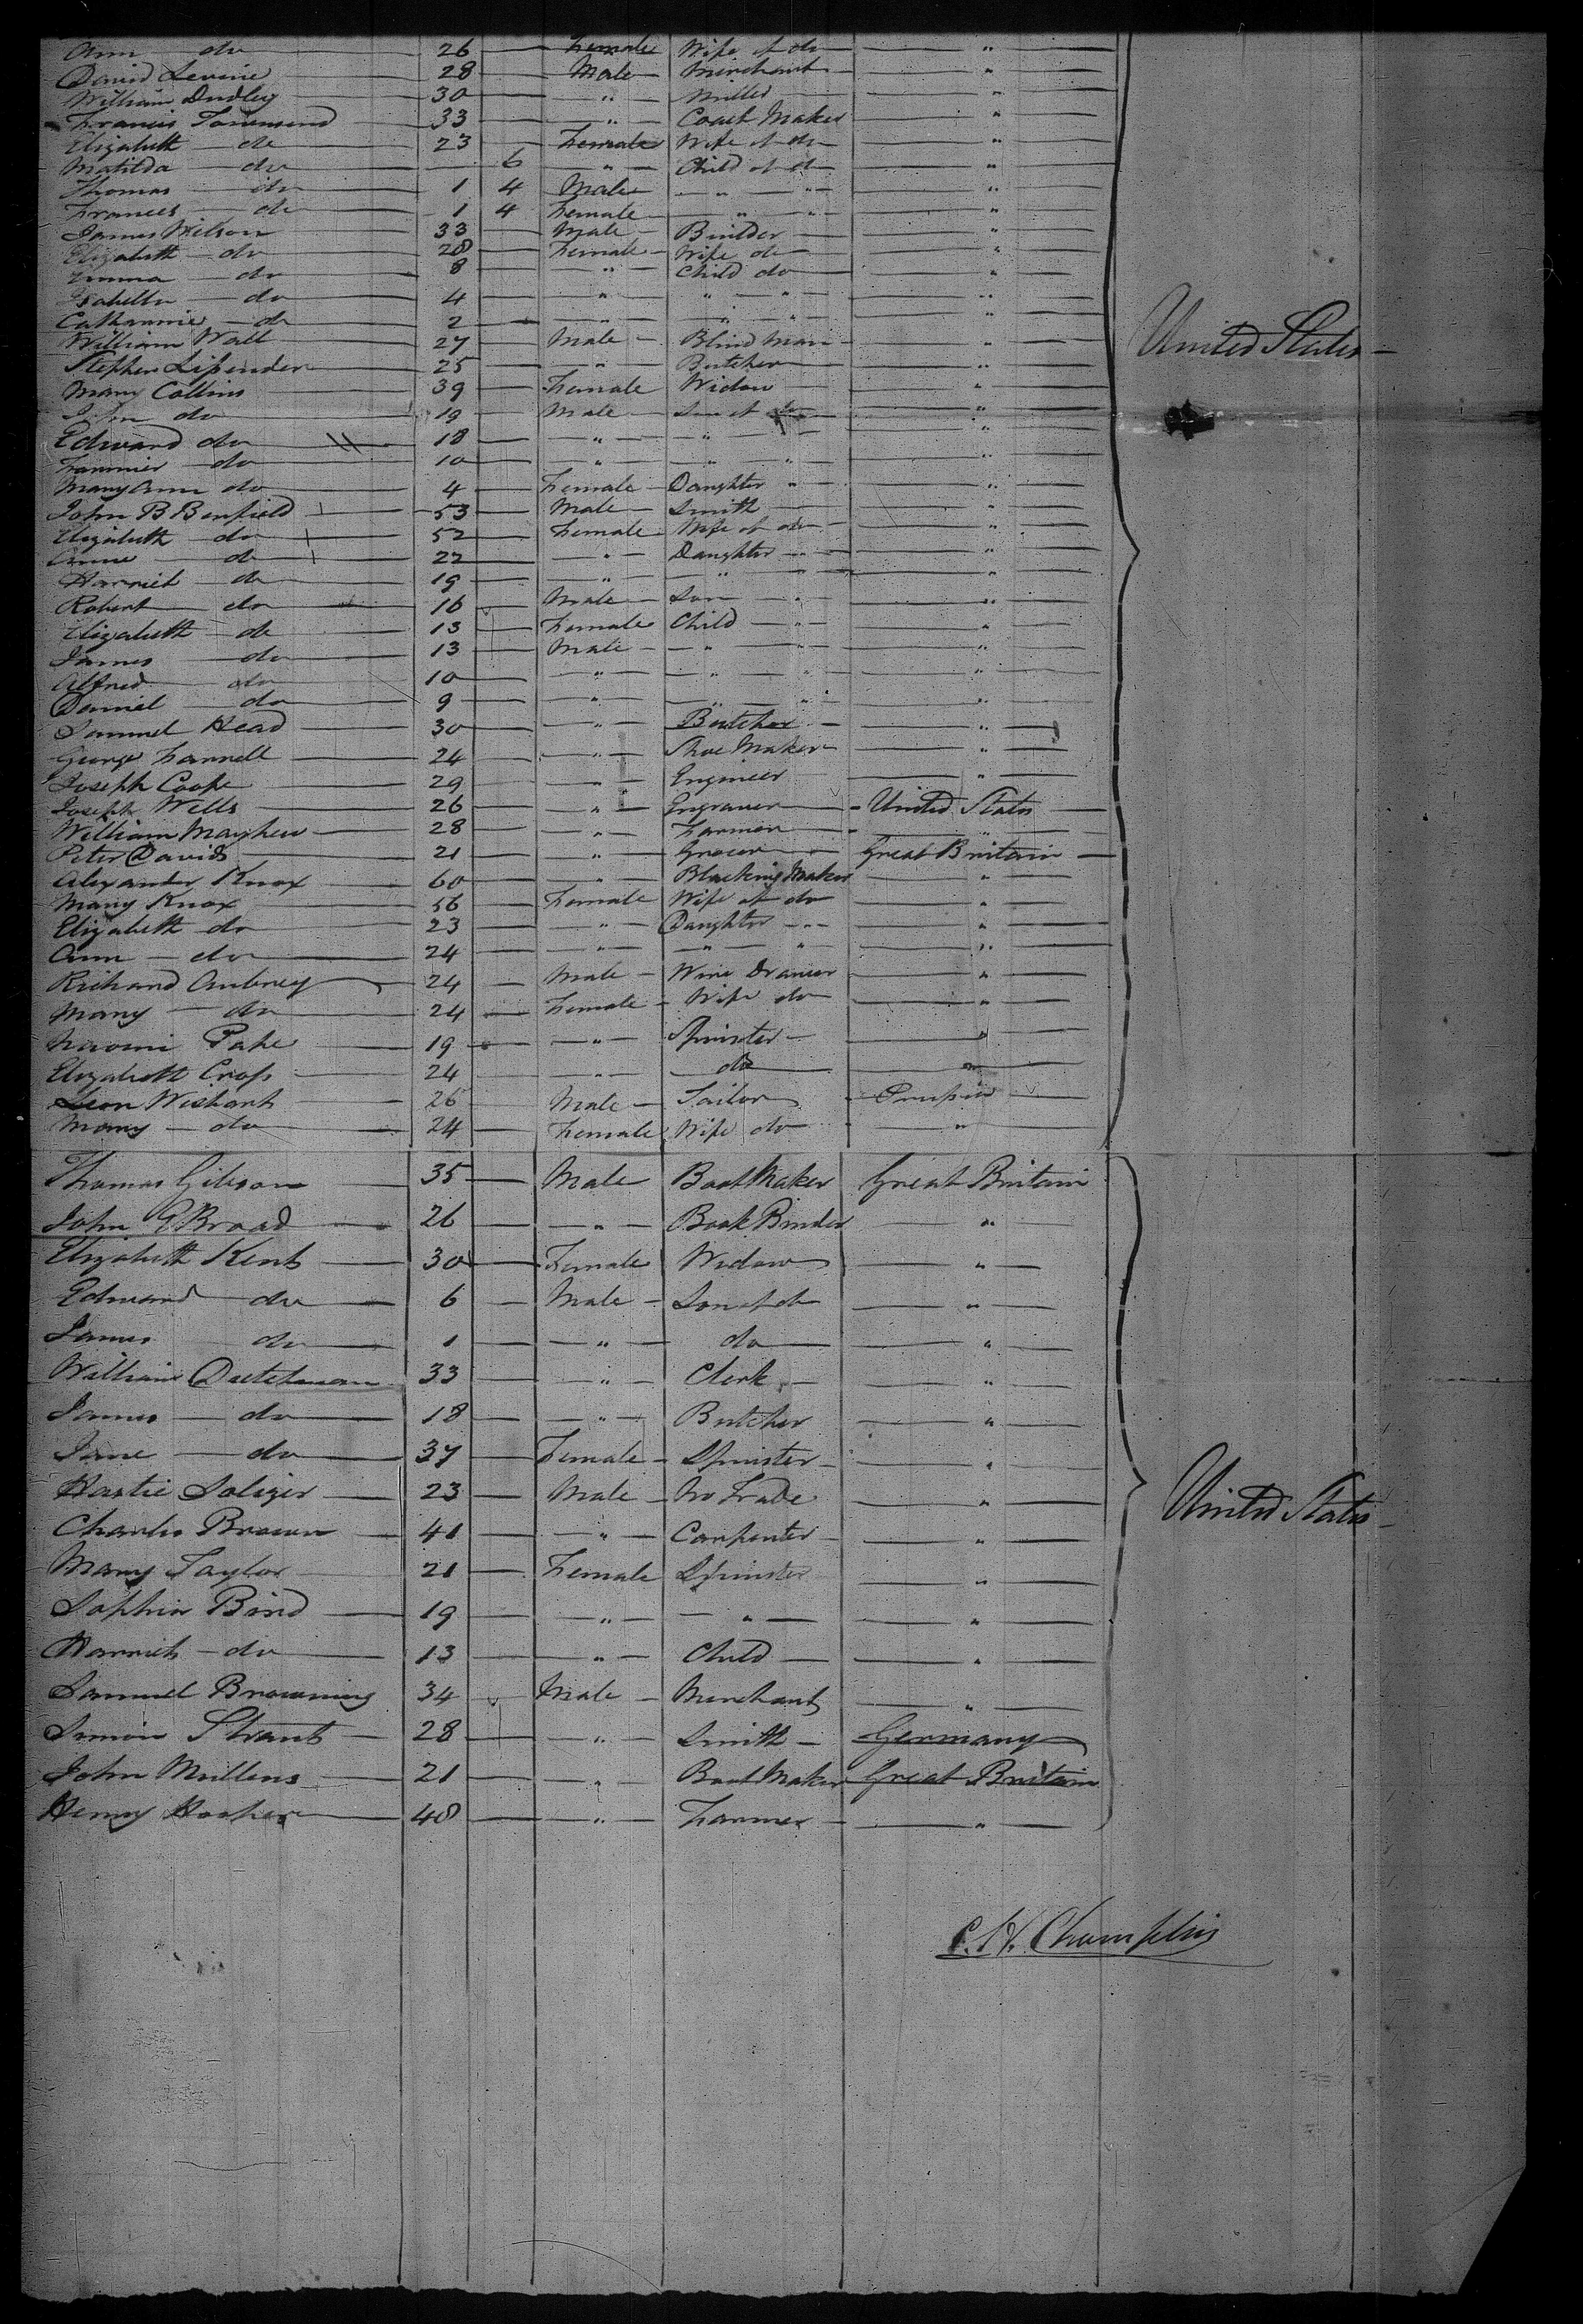 Ann do 26 Female Wife of do "
David Levine 28 Male Merchant "
William Dudley 30 " Miller "
Francis Townsend 33 " Coach Maker "
Elizabeth do 23 Female Wife of do "
Matilda do 6 " Child of do "
Thomas do 1 4 Male " " "
Frances do 1 4 Female " " "
James Wilson 33 Male Builder "
Elizabeth do 28 Female Wife do "
Emma do 8 " Child do "
Isabella do 4 " " " "
Catharine do 2 " " " "
William Wall 27 Male Blind Man "
United States
Stephen Lipender 25 " Butcher "
Mary Collins 39 Female Widow "
John do 19 Male Son of do "
Edward do 18 " " "
do 10 " " " "
Mary Ann do 4 Female Daughter " "
John B Benfield 53 Male Smith "
Elizabeth do 52 Female Wife of do "
Anne do 22 " Daughter " "
Harriet do 19 " " " "
Robert do 16 Male Son " "
Elizabeth do 13 Female Child " "
James do 13 Male " " "
Alfred do 10 " " " "
Daniel do 9 " " " "
Samuel Head 30 " Butcher "
George Farrell 24 " Shoe Maker "
Joseph Cooke 29 " Engineer "
Joseph Wells 26 " Engraver United States
William Mayhew 28 " Farmer "
Peter Davids 21 " Grocer Great Britain
Alexander Knox 60 " Blacking Maker "
Mary Knox 56 Female Wife of do "
Elizabeth do 23 " Daughter " "
Ann do 24 " " " "
Richard Aubrey 24 Male Wire Drawer "
Mary do 24 Female Wife do "
Naomi Pake 19 " Spinster "
Elizabeth Cross 24 " do "
Leon Wishart 26 Male Tailor Prussia
Mary do 24 Female Wife do "
Thomas Gibson 35 Male Boot Maker Great Britain
John E Broad 26 " Book Binder "
Elizabeth Kent 30 Female Widow "
Edward do 6 Male Son of do "
James do 1 " do "
William Dutchman 33 " Clerk "
James do 18 " Butcher "
Jane do 37 Female Spinster "
Hastie Soliger 23 Male No Trade "
United States
Charles Brown 41 " Carpenter "
Mary Taylor 21 Female Spinster "
Sophia Bind 19 " " "
Harriet do 13 " Child "
Samuel Browning 34 Male Merchant "
Simon Strant 28 " Smith Germany
John Mullens 21 " Boot Maker Great Britain
Henry Hooker 48 " Farmer "
C. H. Champlin